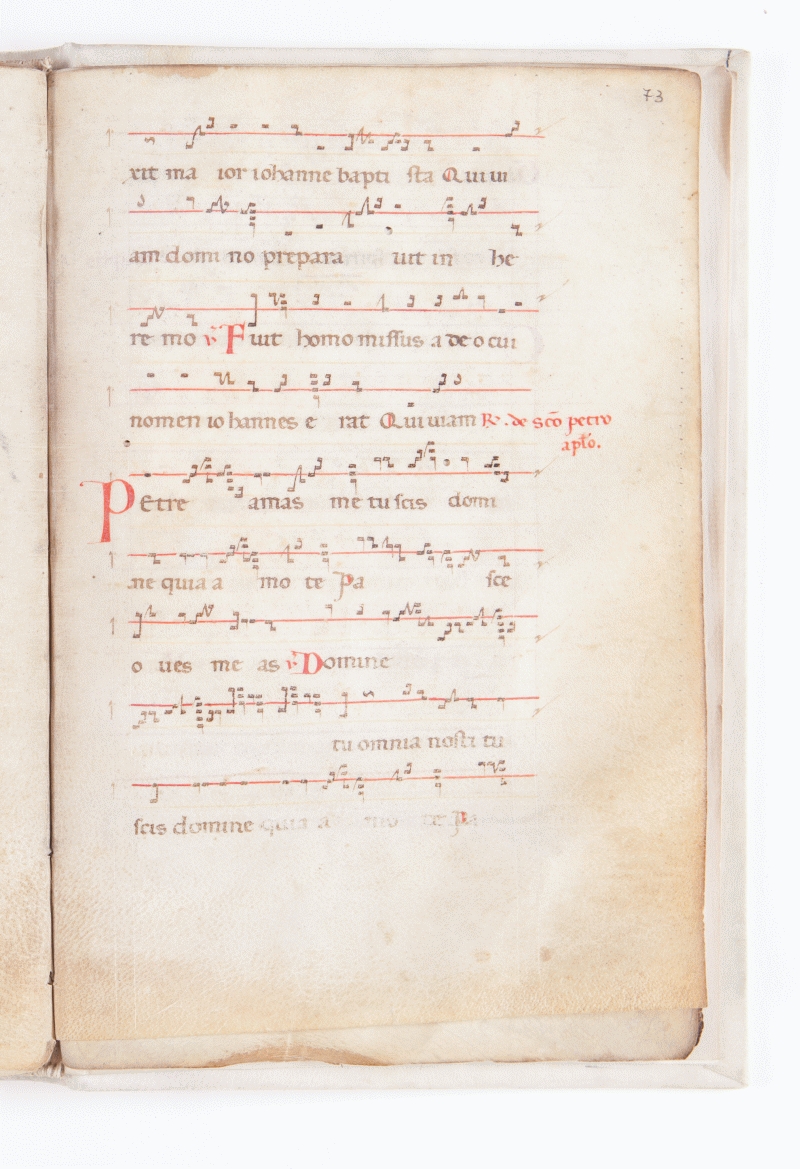 73
xit ma ior iohanne bapti sta Qui ui
am domi no prepara uit in he
re mo v Fuit homo missus a deo cui
nomen iohannes e rat Qui uiam R. de sco petro
aplo.
Petre amas me tu scis domi
ne quia a mo te Pa sce
o ues me as v Domine
tu omnia nosti tu
scis domine quia a mo te Pa